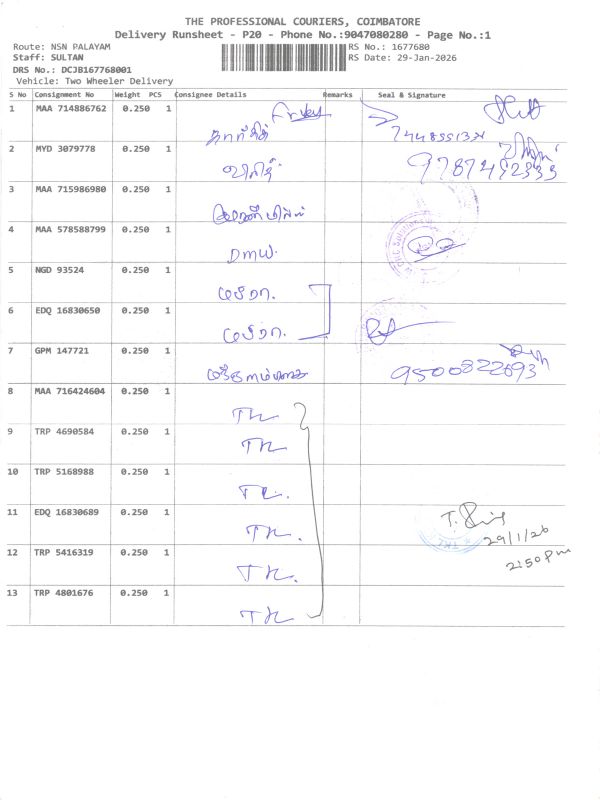 THE PROFESSIONAL COURIERS, COIMBATORE
Delivery Runsheet - P20 - Phone No.:9047080280 - Page No.:1
Route: NSN PALAYAM RS No.: 1677680
Staff: SULTAN RS Date: 29-Jan-2026
DRS No.: DCJB167768001
Vehicle: Two Wheeler Delivery
S No Consignment No Weight PCS Consignee Details Remarks Seal & Signature
1 MAA 714886762 0.250 1
2 MYD 3079778 0.250 1
9787492333
3 MAA 715986980 0.250 1
4 MAA 578588799 0.250 1
DMW.
5 NGD 93524 0.250 1
6 EDQ 16830650 0.250 1
7 GPM 147721 0.250 1
9500822693
8 MAA 716424604 0.250 1
TK
9 TRP 4690584 0.250 1
TK
10 TRP 5168988 0.250 1
TK.
11 EDQ 16830689 0.250 1
TK.
29/1/26
12 TRP 5416319 0.250 1
2:50 pm
TK.
13 TRP 4801676 0.250 1
TK